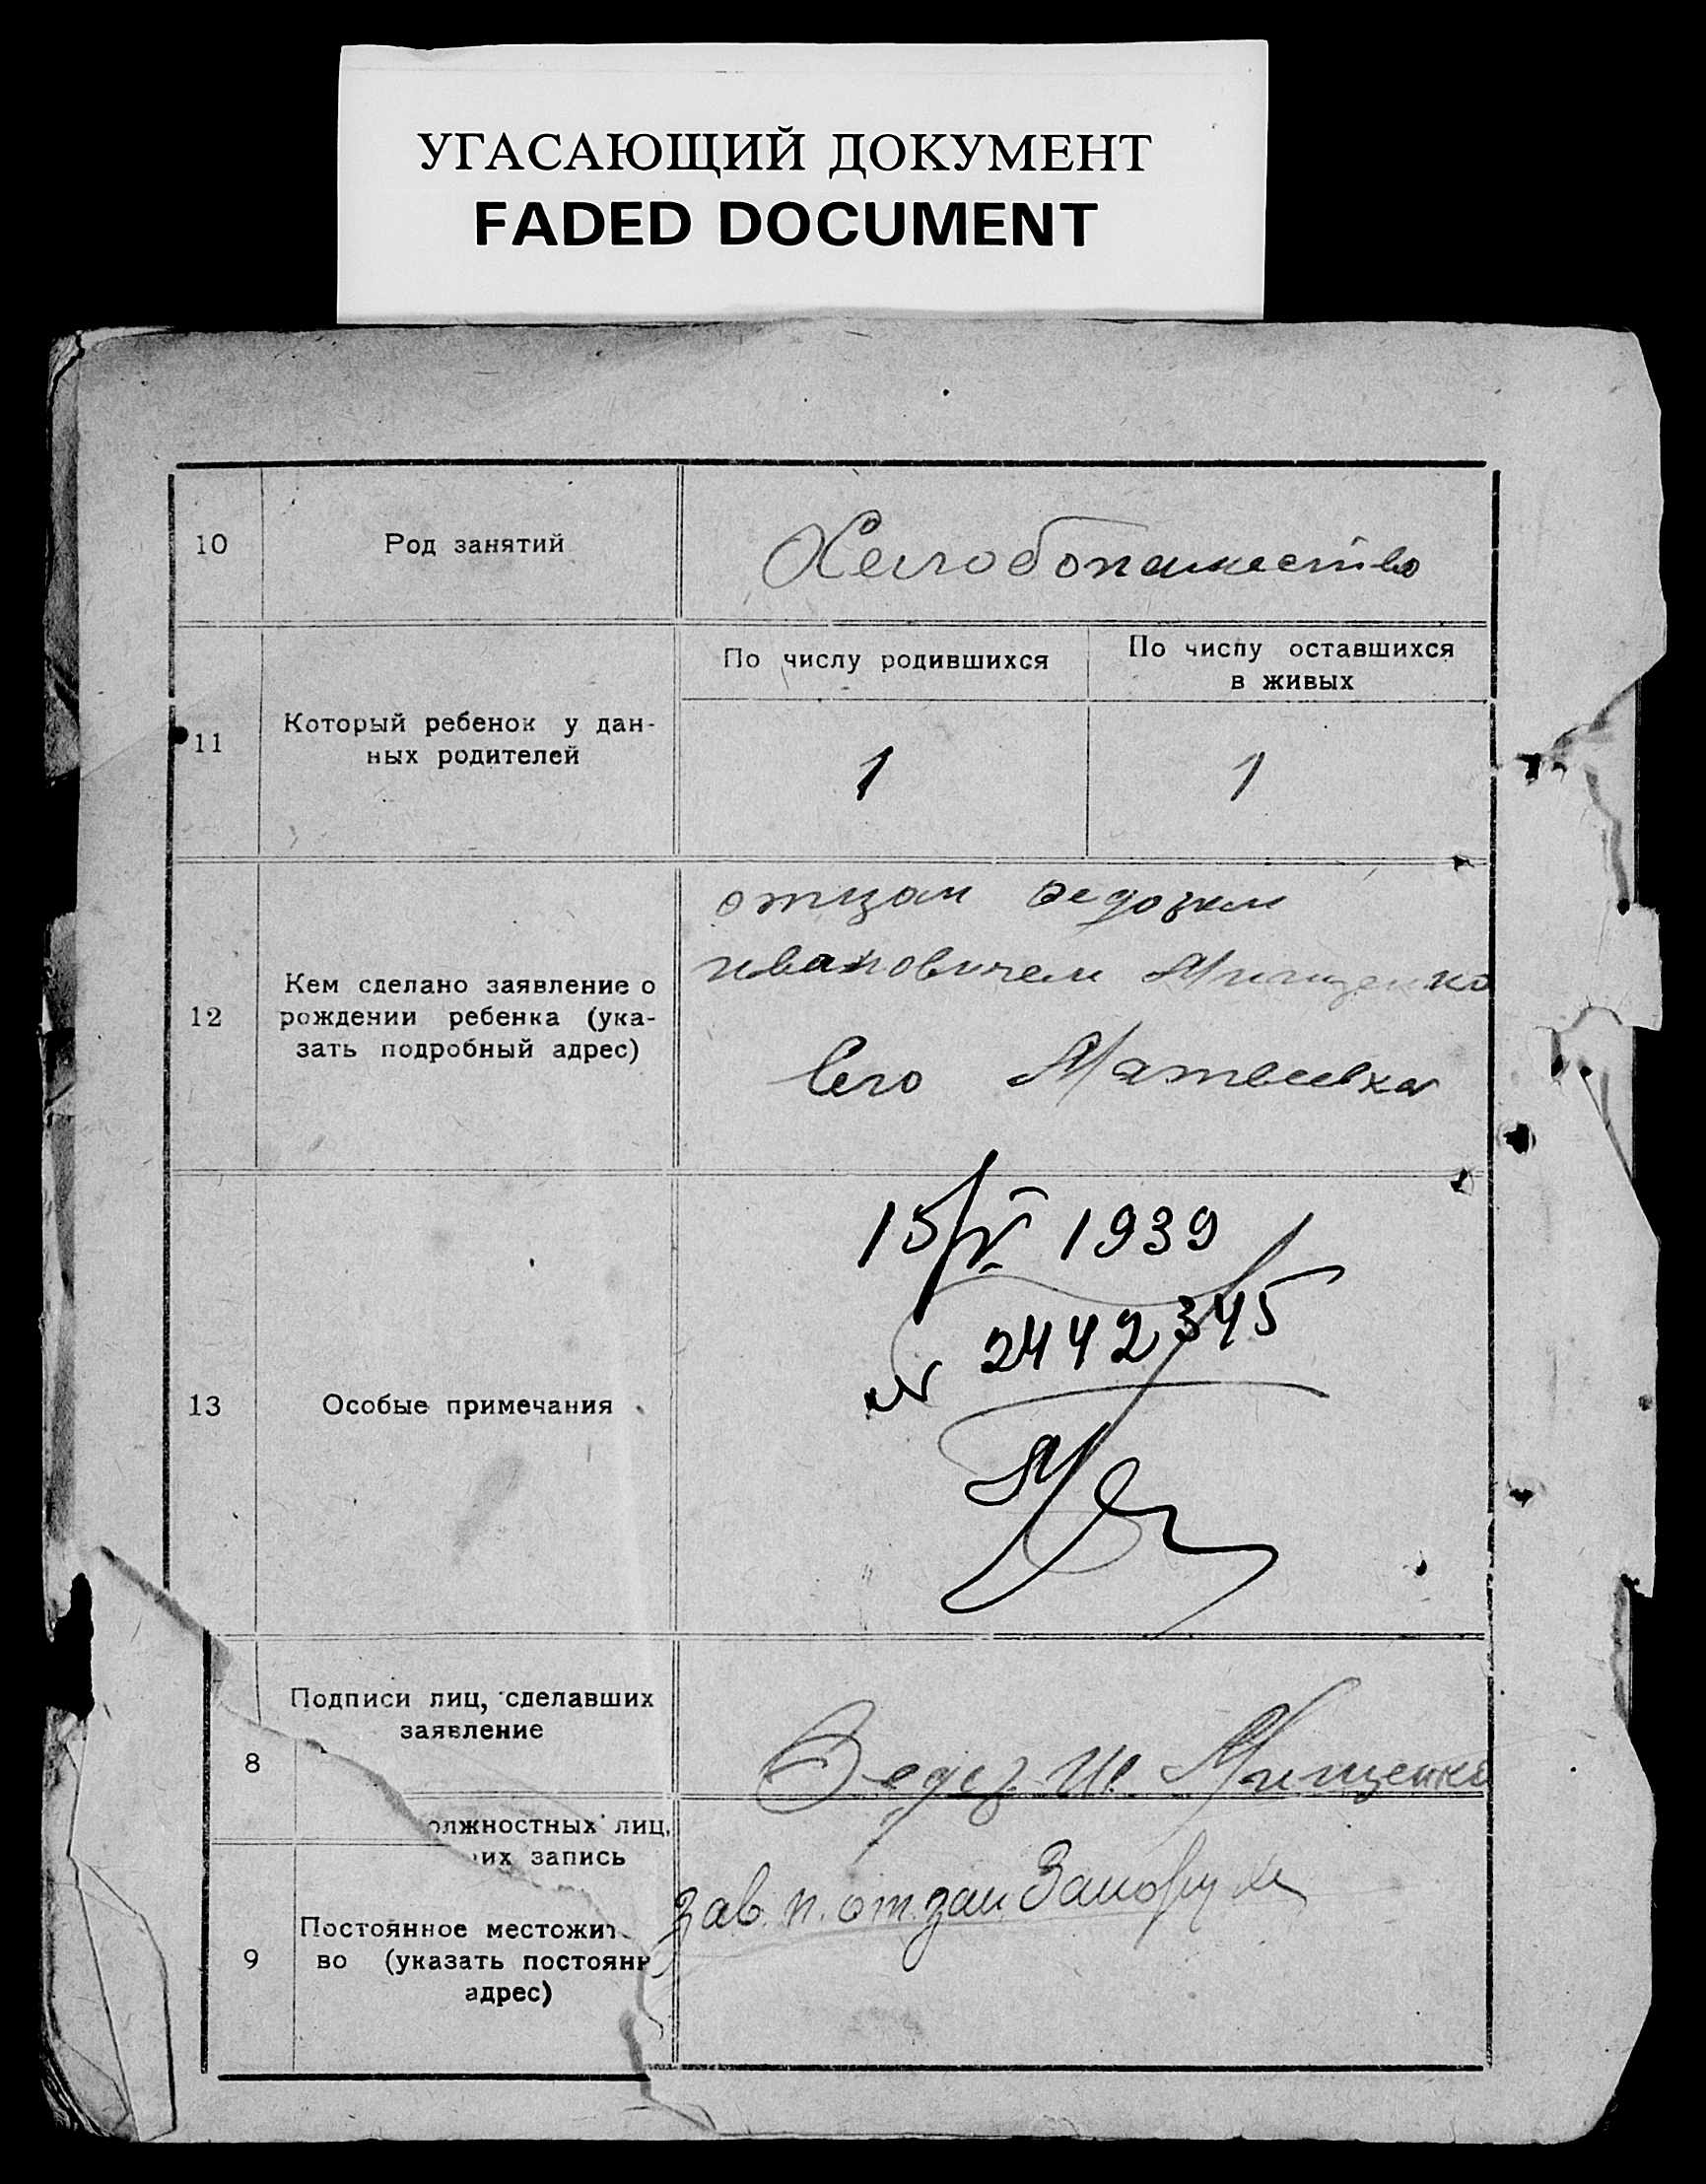 УГАСАЮЩИЙ ДОКУМЕНТ
FADED DOCUMENT
10
Род занятий
11
Который ребенок у дан-
ных родителей
По числу родившихся
По числу оставшихся
в живых
1
1
12
Кем сделано заявление о
рождении ребенка (ука-
зать подробный адрес)
отцом
Ивановичем Мищенко
Село Матвеевка
13
Особые примечания
15/IV 1939
N 2442345
Подписи лиц, сделавших
заявление
8
И. Мищенко
олжностных лиц,
их запись
зав.
9
Постоянное местожит
во (указать постоянн
адрес)